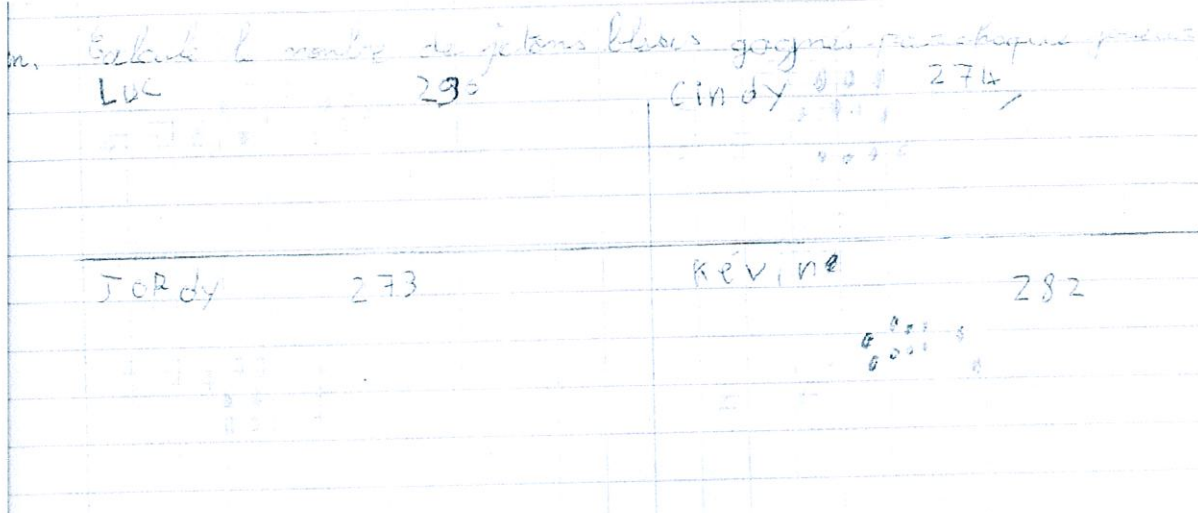 n. Calcule le nombre de jetons bleus gagnés par chaque joueur
LUC 290 Cindy 274
JORdy 273 Kévine 282